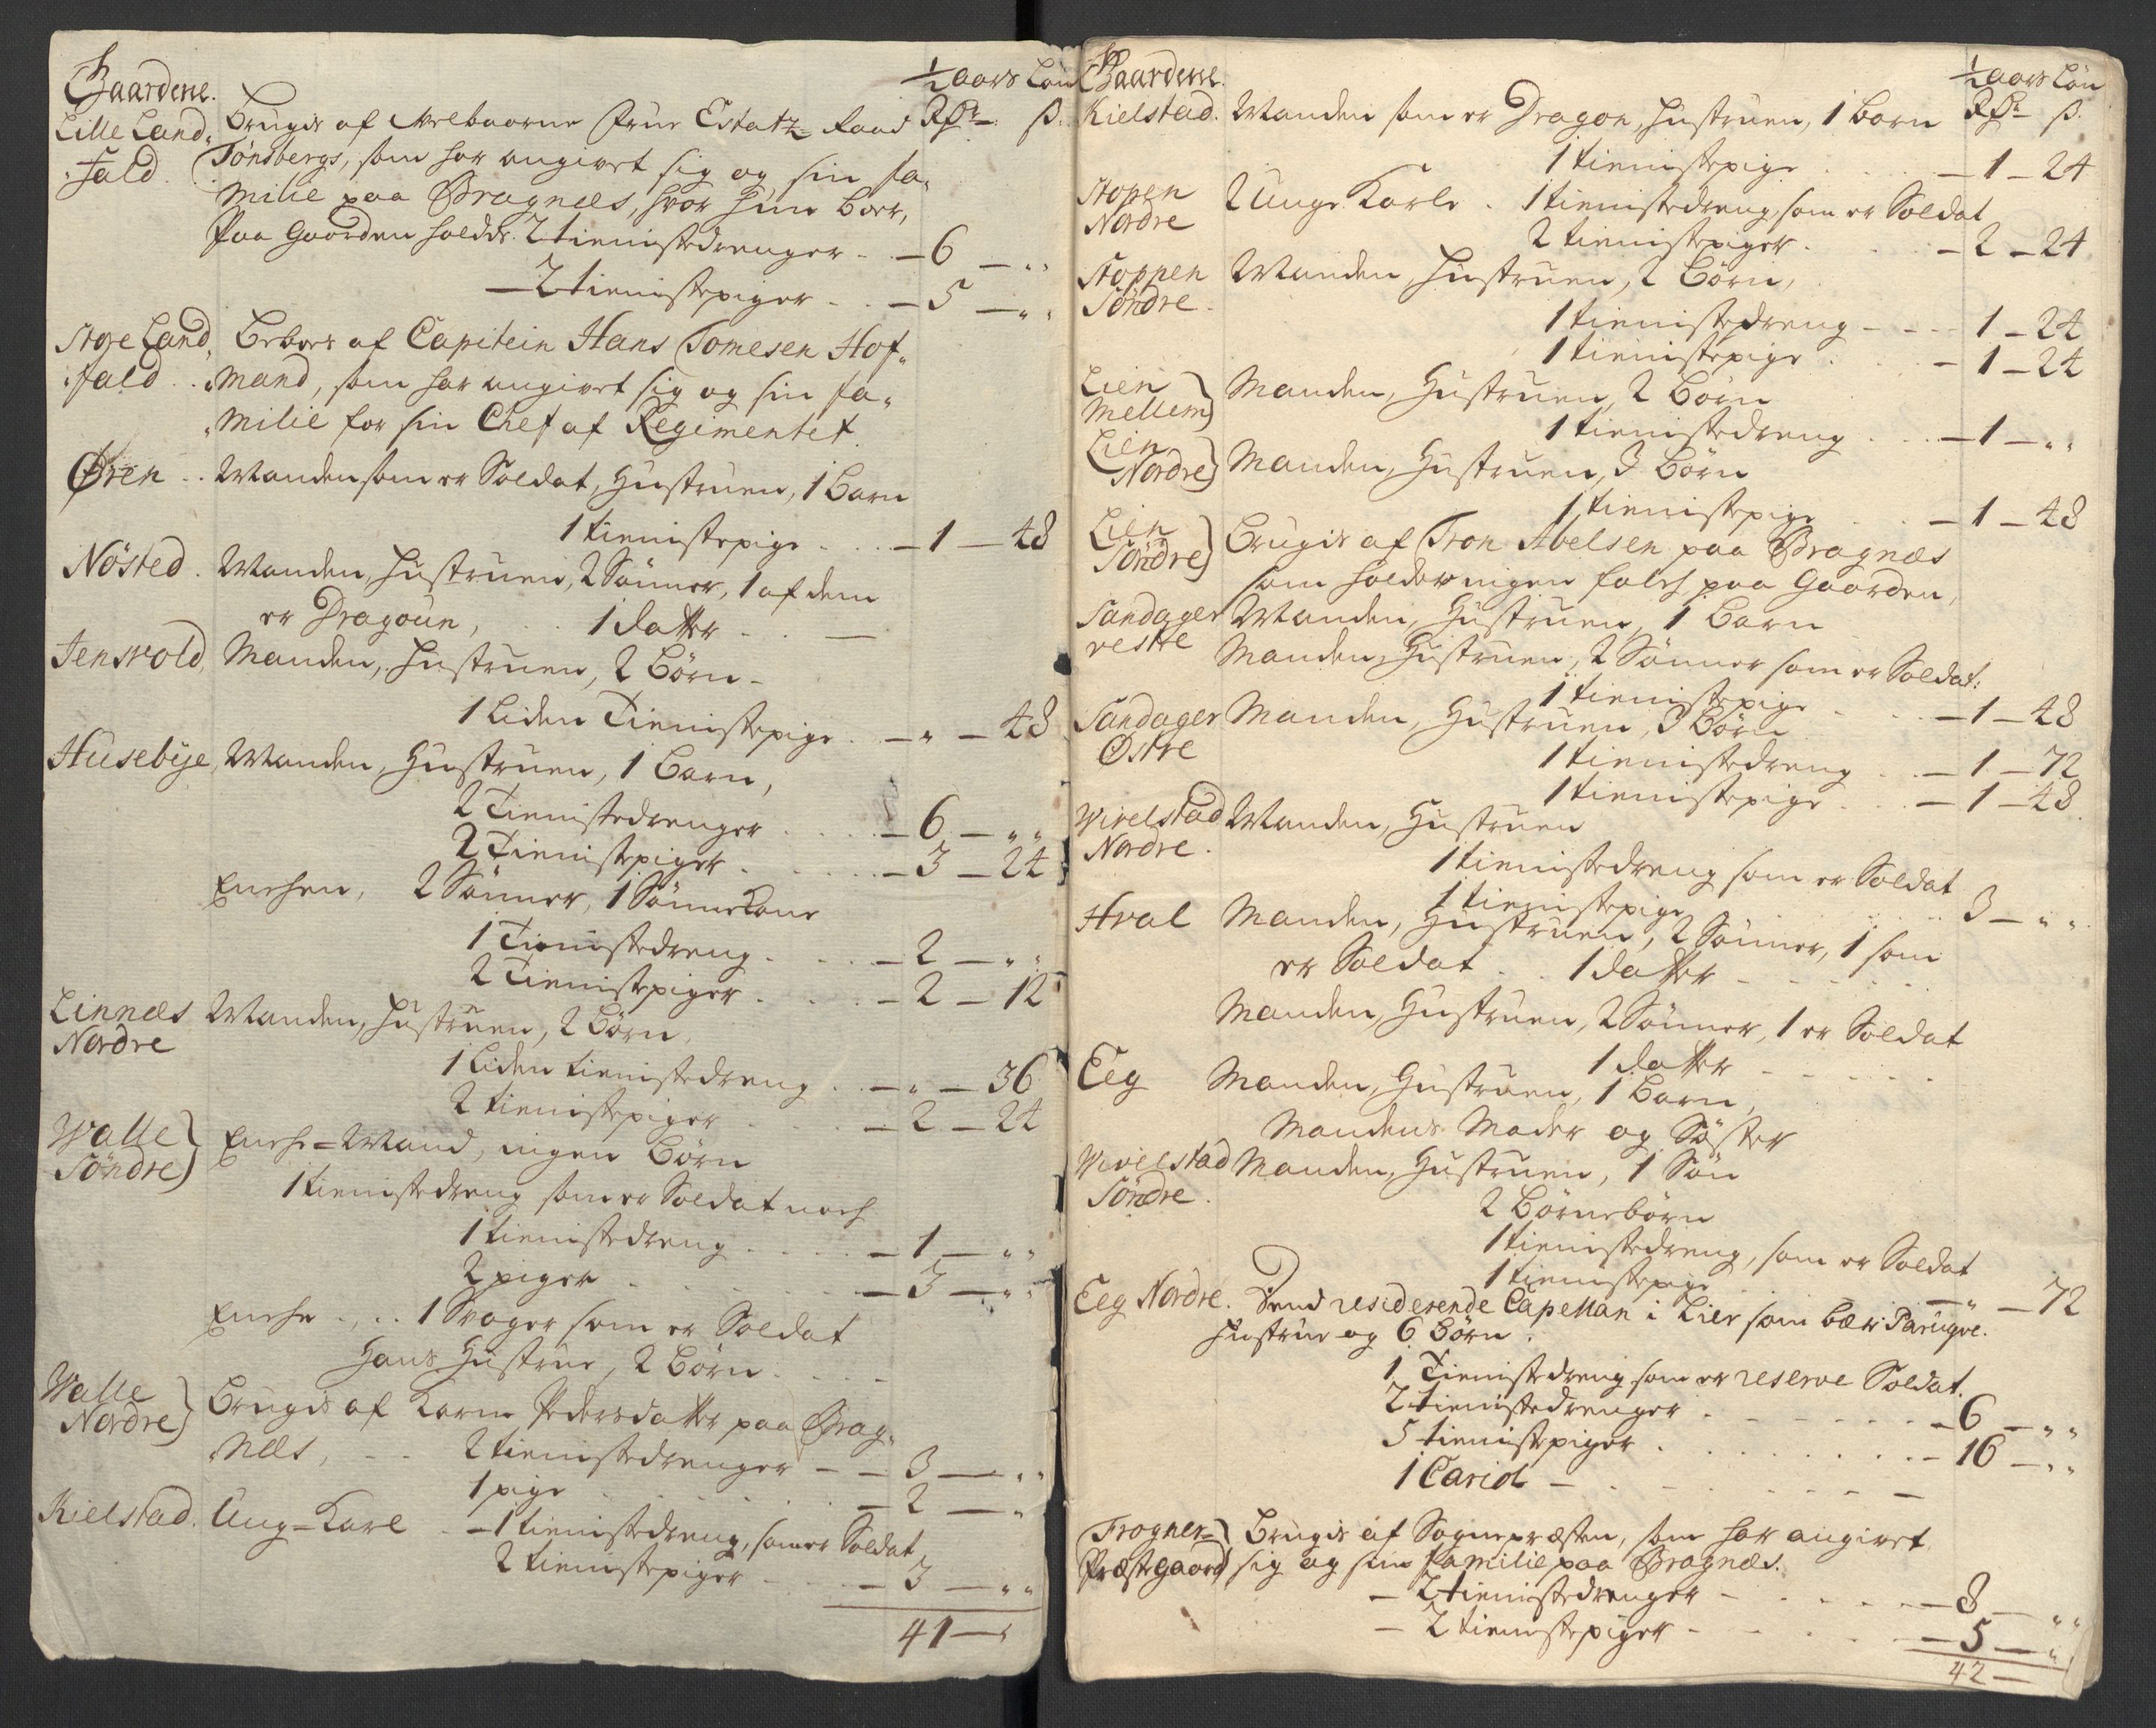 Gaardene. ½ aars Løn
Lille Land„ Brugis af Velbaarne Frue Estatz-Raad Rdr ß.
„fald. Tønsbergs, som har angivet sig og sin fa„
milie paa Bragnæs, hvor hun boer,
Paa Gaarden holdes 2 tienistedrenger - - 6 — „
— 2 tienistepiger - - 5 — „
Store Land„ Beboes af Capitein Hans Tomesen Hof„
„fald . . „mand, som har angivet sig og sin fa„
„milie for sin Chef af Regimentet.
Øren . . Manden som er Soldat, Hustruen, 1 Barn
1 tienistepige . . . — 1 — 48
Nøsted . Manden, Hustruen, 2 Sønner, 1 af dem
er Dragoun, . . 1 datter . . —
Jensvold, Manden, Hustruen, 2 Børn -
1 Liden Tienistepige . — „ — 48
Husebye, Manden, Hustruen, 1 Barn,
2 Tienistedrenger . . . — 6 — „
2 Tienistepiger . . . — 3 — 24
Enchen, 2 Sønner, 1 Sønnekone
1 Tienistedreng . . . — 2 — „
2 Tienistepiger . . . — 2 — 12
Linnæs Manden, Hustruen, 2 Børn,
Nordre
1 Liden tienistedreng . . — „ — 36
2 tienistepiger . . . — 2 — 24
Valle Enche-Mand, ingen Børn
Søndre)
1 tienistedreng som er Soldat noch
1 tienistedreng . . . — 1 — „
2 piger . . . . — 3 — „
Enche . . . 1 Svoger som er Soldat
Hans Hustrue, 2 Børn . . . .
Valle Brugis af Karen Pedersdatter paa Brag„
Nordre)
„næs, - - 2 tienistedrenger — — 3 — „
1 pige . . . . — 2 — „
Kielstad. Ung-Karl . — 1 tienistedreng, som er Soldat
2 tienistepiger . . . — 3 — „
41 — „
Gaardene. ½ aars Løn
Kielstad. Manden som er Dragon, Hustruen, 1 barn Rdr ß.
1 tienistepige . . . — 1 — 24
Stopen 2 Unge Karle . 1 tienistedreng, som er Soldat
Nordre
2 tienistepiger . . . — 2 — 24
Stoppen Manden, Hustruen, 2 Børn,
Søndre .
1 tienistedreng - - - 1 — 24
1 tienistepige . . — 1 — 24
Lien Manden, Hustruen, 2 Børn
Mellem)
1 tienistedreng . . . — 1 — „
Lien Manden, Hustruen, 3 Børn
Nordre)
1 tienistepige . . — 1 — 48
Lien Brugis af Tron Abelsen paa Bragnæs
Søndre) som holder ingen folch paa Gaarden,
Sandager Manden, Hustruen, 1 Barn
vestre Manden, Hustruen, 2 Sønner som er Soldat:
1 tienistepige . . — 1 — 48
Sandager Manden, Hustruen, 3 Børn
Østre
1 tienistedreng . . — 1 — 72
1 tienistepige . . — 1 — 48
Vivelstad Manden, Hustruen
Nordre .
1 tienistedreng som er Soldat
1 tienistepige . . . . 3 — „
Hval Manden, Hustruen, 2 Sønner, 1 som
er Soldat . . 1 datter - - - -
Manden, Hustruen, 2 Sønner, 1 er Soldat
1 datter - - - -
Eeg Manden, Hustruen, 1 Barn,
Mandens Moder og Søster
Vivelstad Manden, Hustruen, 1 Søn
Søndre .
2 Børnebørn
1 tienistedreng, som er Soldat
1 tienistepige — „ — 72
Eeg Nordre. Dend residerende Capellan i Lier som bær Parugve.
Hustrue og 6 Børn .
1 Tienistedreng som er reserve Soldat.
2 tienistedrenger . - - - - — 6 — „
5 tienistepiger . . . . . — 16 — „
1 Cariol — . . . . —
Frogner- Brugis af Sognepræsten, som har angivet
Præstegaard) sig og sin familie paa Bragnæs.
— 2 tienistedrenger - . . . — 8 — „
— 2 tienistepiger - . . . — 5 — „
42 —